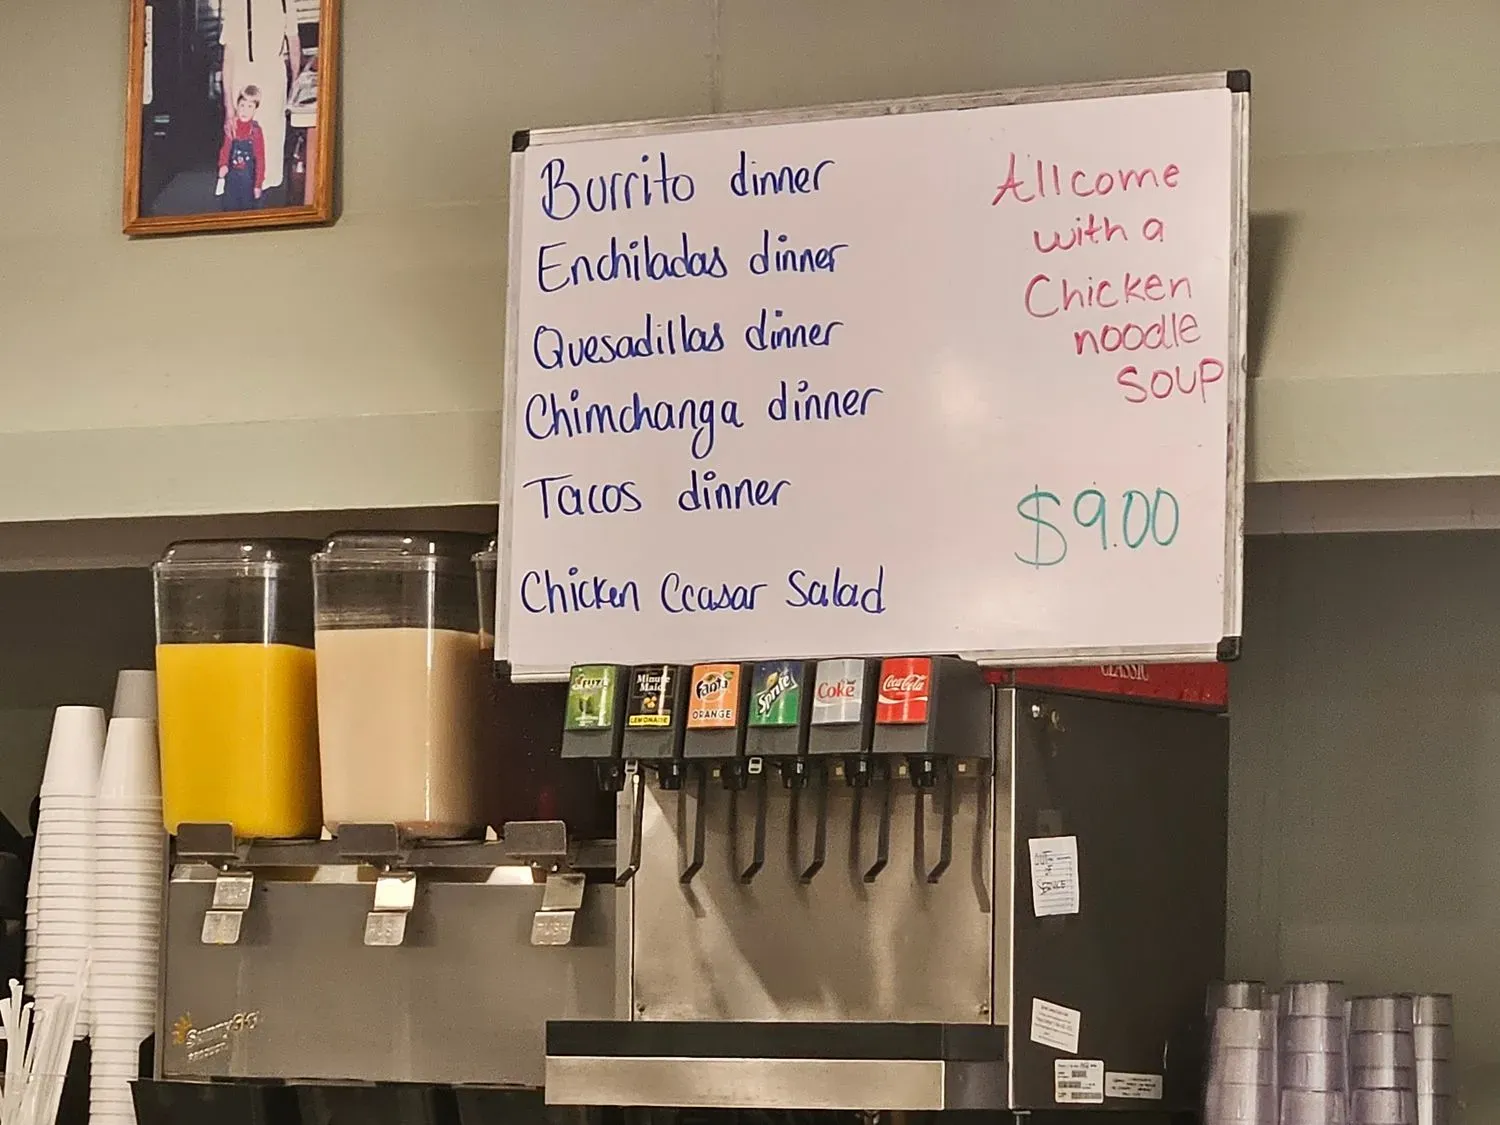 Burrito dinner
Enchiladas dinner
Quesadillas dinner
Chimchanga dinner
Tacos dinner
Chicken Ccasar Salad
All come
with a
Chicken
noodle
SOUP
$9.00
Minute
Maid
LEMONADE
Fanta
ORANGE
Sprite
Coke
Coca-Cola
CLASSIC
OUT
OF
PUSH